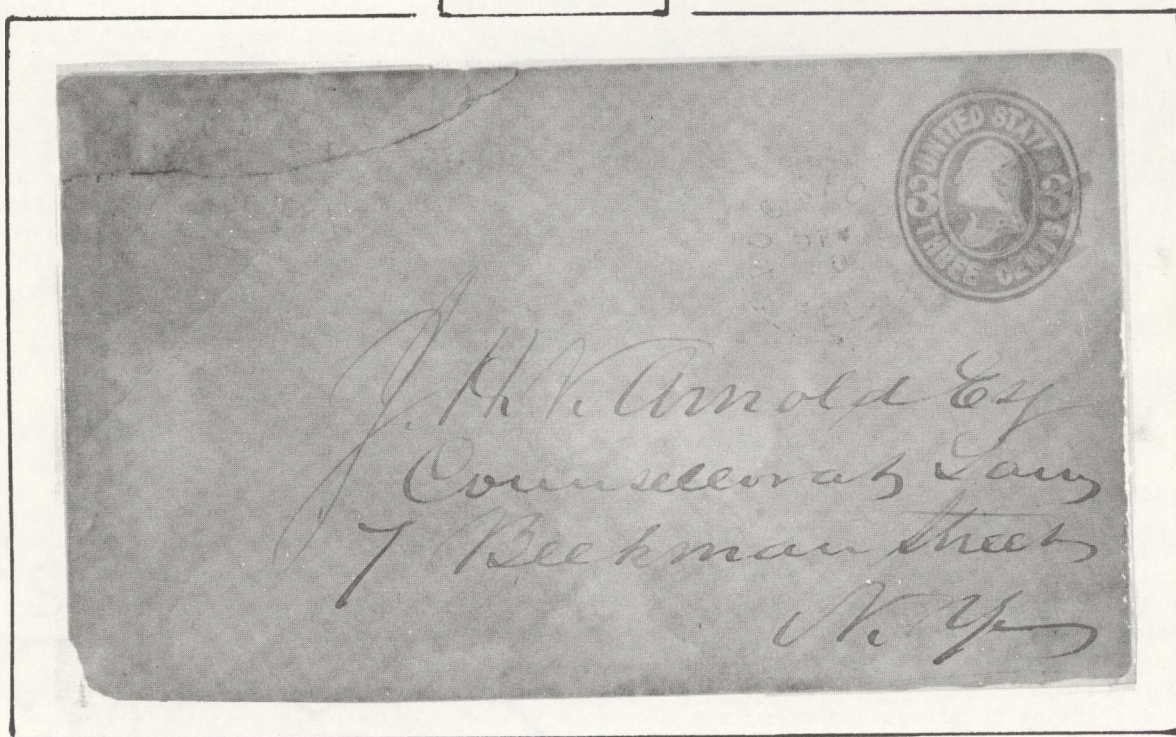 UNITED STATES
3 3
THREE CENTS
J. H. V. Arnold Esq
Counsellor at Law
7 Beekman Street
N. Y.